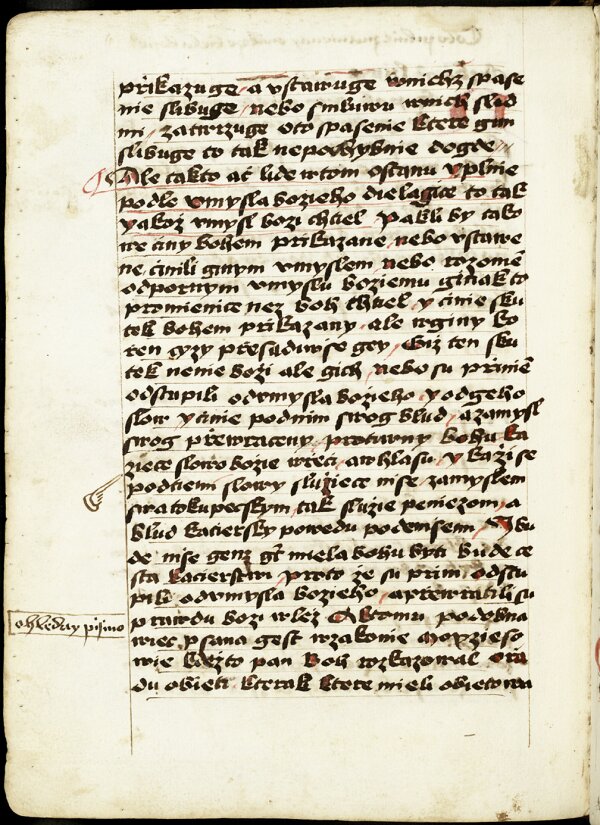 přikazuge, a vstawuge wnichz spase
nie slibuge, nebo smluwu wnich slid
mi, zatwrzuge oto spasenie ktere gim
slibuge to tak nepochybnie dogde,
Ale takto at lide wtom ostanu vplnie
podle vmysla bozieho dielagice to tak
yakoz vmysl bozi chtiel, Pakli by tako
we činy bohem přikazane, nebo vstawe
ne, činili ginym vmyslem, nebo rozomē
odpornym vmyslu boziemu ginak to
promienice nez boh chtiel, y činie sku
tek bohem přikazany, ale wginy ko
řen gyzy přesadiwse gey, Giz ten sku
tek nenie bozi ale gich, nebo su přiniē
odstupili odvmysla bozieho, y odgeho
slow, y činie podnim swog blud, azamysl
swog přewraceny, protiwny bohu ka
ziece slowo bozie wřeči, awhlasu, y kaži se
podtiem slowy slúžiece mse, zamyslem
swatokupeckym, tak slúzie peniezom, a
blud kaciersky powedu podemssem, A bu
de mse genz gt miela bohu byti bude ce
sta kacierstwi, proto že su prim odstu
pili odvmysla bozieho, apřewratili su
prawdu bozi wlež, A komu podobna
wiec psana gest wzakonie moyzieso
wie kdežto pan boh rozkazowal ořa
du obieti, kterak ktere mieli obietowa
ohleday pismo